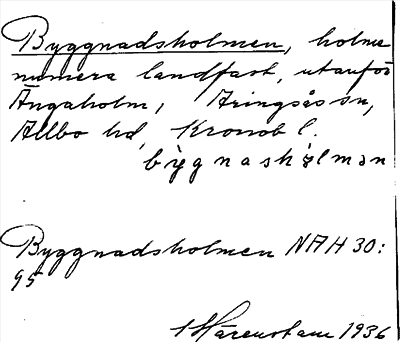 Byggnadsholmen, holme
numera landfast, utanför
Ängaholm, Aringsås sn,
Allbo hd, Kronob l.
bỳgnashòlmən
Byggnadsholmen NAH 30:
95
Härenstam 1936